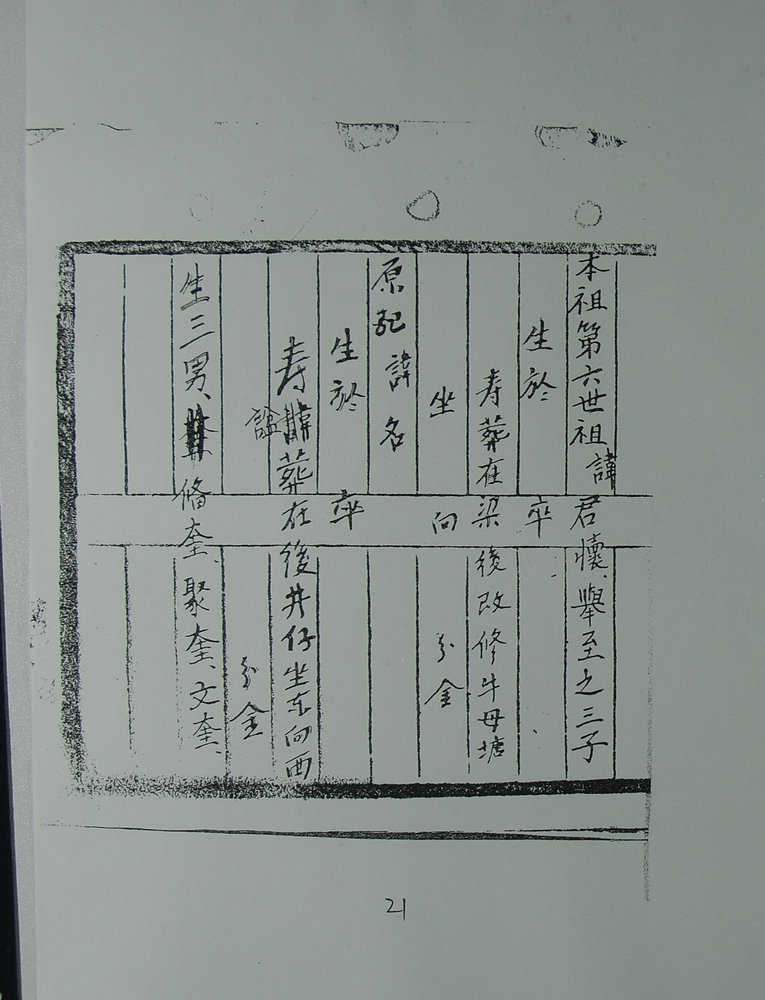 本祖第六世祖諱君懷、舉至之三子
生於 卒
寿葬在梁後改修牛母塘
坐 向 分金
原配諱名
生於 卒
寿諡葬在後井仔坐东向西
分金
生三男、脩奎、聚奎、文奎、
21